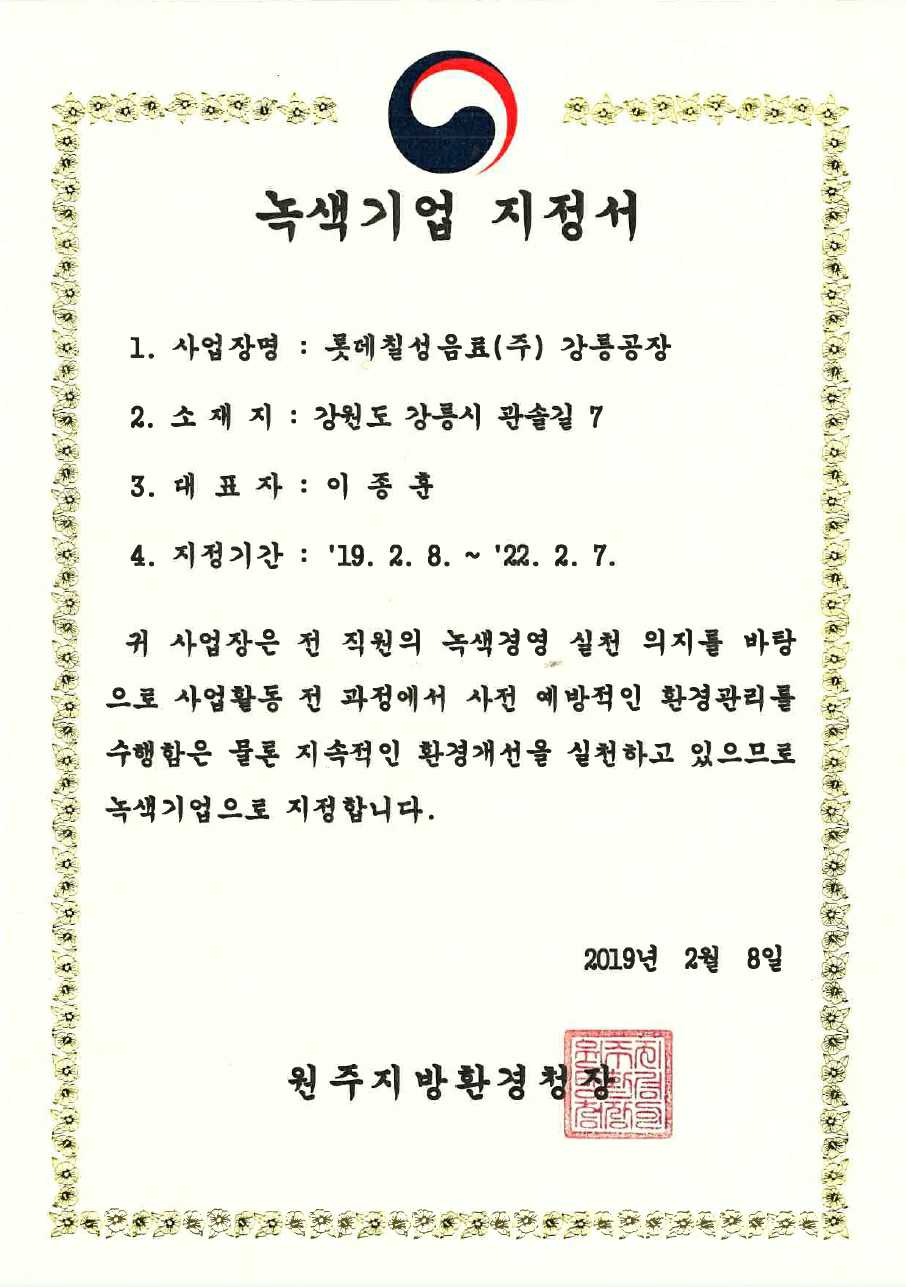 녹색기업 지정서
1. 사업장명 : 롯데칠성음료(주) 강릉공장
2. 소 재 지 : 강원도 강릉시 관솔길 7
3. 대 표 자 : 이 종 훈
4. 지정기간 : '19. 2. 8. ~ '22. 2. 7.
귀 사업장은 전 직원의 녹색경영 실천 의지를 바탕
으로 사업활동 전 과정에서 사전 예방적인 환경관리를
수행함은 물론 지속적인 환경개선을 실천하고 있으므로
녹색기업으로 지정합니다.
2019년 2월 8일
원주지방환경청장